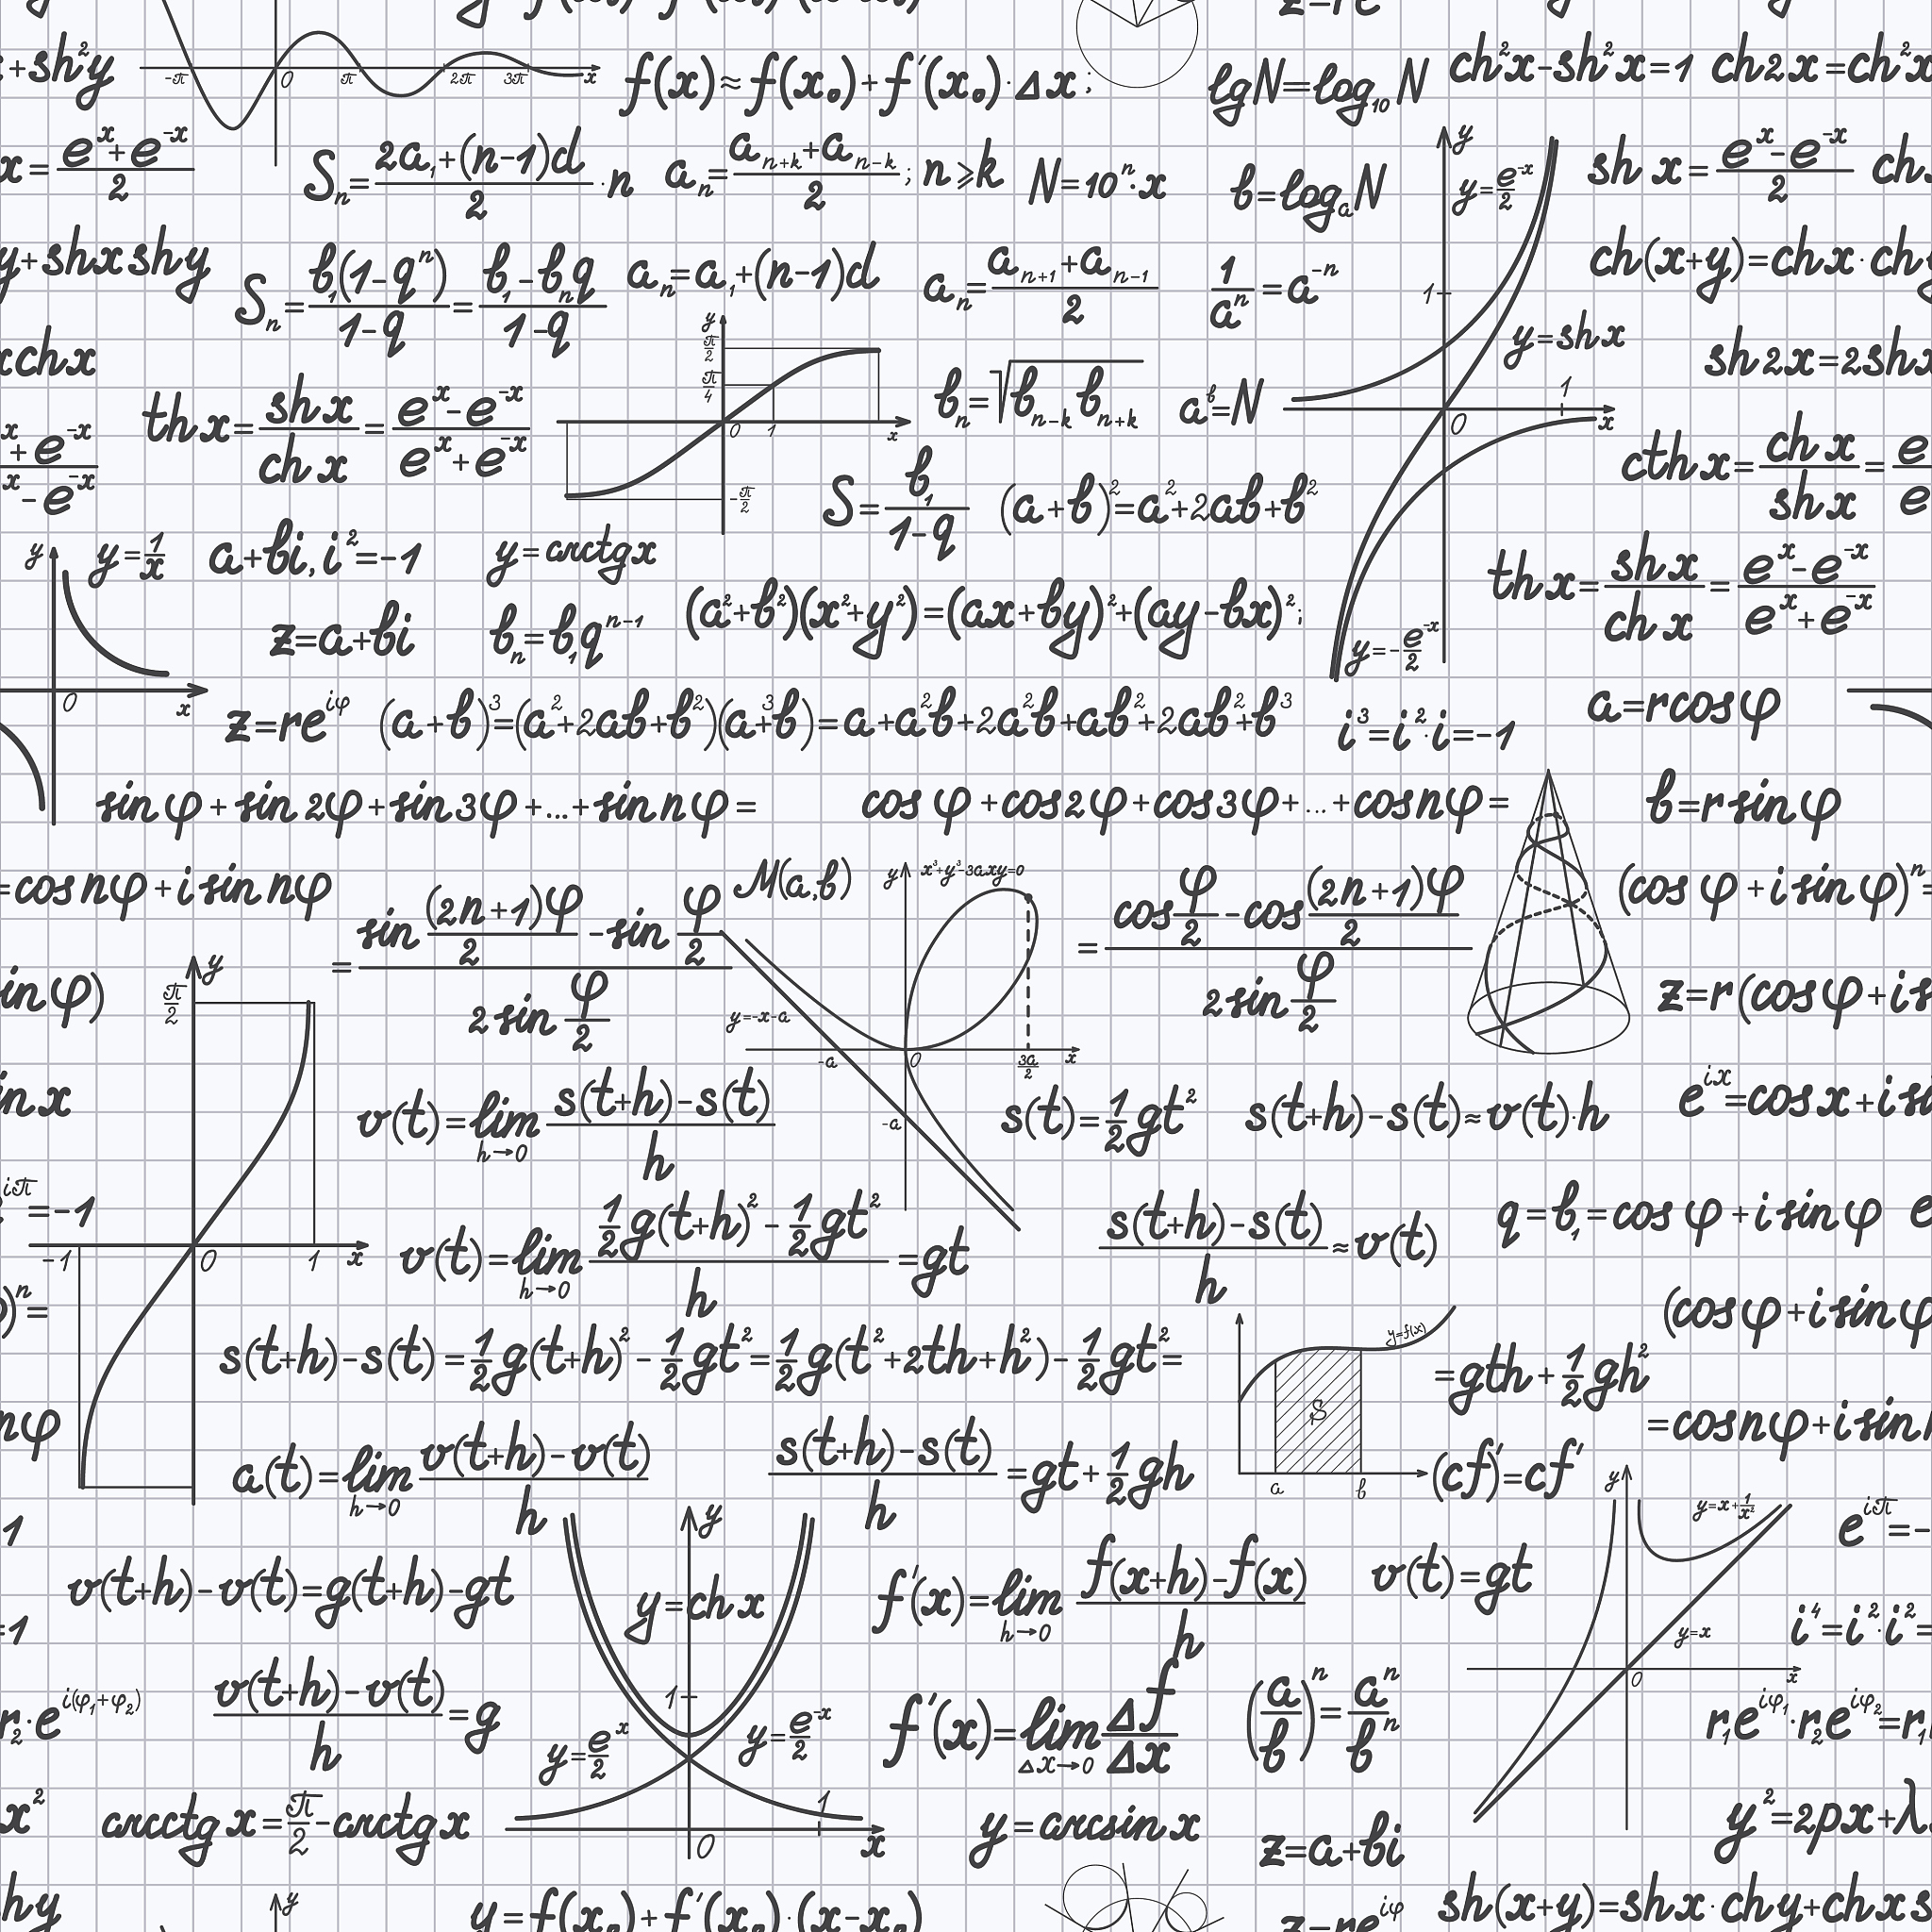 +sh²y
-π 0 π 2π 3π x
f(x)≈f(x₀)+f'(x₀)·Δx;
lgN=log₁₀N
ch²x-sh²x=1
ch2x=ch²x
x=(eˣ+e⁻ˣ)/2
Sₙ=(2a₁+(n-1)d)/2·n
aₙ=(aₙ₊ₖ+aₙ₋ₖ)/2; n⩾k
N=10ⁿ·x
b=logₐN
y
y=e⁻ˣ/2
sh x=(eˣ-e⁻ˣ)/2
y+shxshy
Sₙ=b₁(1-qⁿ)/(1-q)=(b₁-bₙq)/(1-q)
aₙ=a₁+(n-1)d
aₙ=(aₙ₊₁+aₙ₋₁)/2
1/aⁿ=a⁻ⁿ
1
ch(x+y)=chx·chy
xchx
y π/2 π/4 0 1 x -π/2
y=shx
1 0 x
sh2x=2shx
thx=shx/chx=(eˣ-e⁻ˣ)/(eˣ+e⁻ˣ)
bₙ=√bₙ₋ₖbₙ₊ₖ
aᵇ=N
x+e⁻ˣ
x-e⁻ˣ
S=b₁/(1-q)
(a+b)²=a²+2ab+b²
cthx=chx/shx=e/e
y y=1/x
0 x
a+bi, i²=-1
y=arctgx
thx=shx/chx=(eˣ-e⁻ˣ)/(eˣ+e⁻ˣ)
z=a+bi
bₙ=b₁qⁿ⁻¹
(a²+b²)(x²+y²)=(ax+by)²+(ay-bx)²;
y=-e⁻ˣ/2
z=re^iφ
(a+b)³=(a²+2ab+b²)(a+b)=a³+a²b+2a²b+ab²+2ab²+b³
i³=i²·i=-1
a=rcosφ
sinφ+sin2φ+sin3φ+...+sinnφ=
cosφ+cos2φ+cos3φ+...+cosnφ=
b=rsinφ
=cosnφ+isinnφ
=(sin (2n+1)φ/2-sin φ/2)/(2sin φ/2)
M(a,b)
y x³+y³-3axy=0
y=-x-a
-a 0 3a/2 x
-a
=(cos φ/2-cos (2n+1)φ/2)/(2sin φ/2)
(cosφ+isinφ)ⁿ=
inφ)
y π/2
-1 0 1 x
z=r(cosφ+i s
in x
v(t)=lim h→0 (s(t+h)-s(t))/h
s(t)=1/2gt²
s(t+h)-s(t)≈v(t)·h
e^ix=cosx+i si
iπ=-1
v(t)=lim h→0 (1/2g(t+h)²-1/2gt²)/h=gt
(s(t+h)-s(t))/h≈v(t)
q=b₁=cosφ+isinφ e
)ⁿ=
(cosφ+isinφ
s(t+h)-s(t)=1/2g(t+h)²-1/2gt²=1/2g(t²+2th+h²)-1/2gt²=
y=f(x)
S
a b
=gth+1/2gh²
nφ
=cosnφ+isin
a(t)=lim h→0 (v(t+h)-v(t))/h
(s(t+h)-s(t))/h=gt+1/2gh
(cf)'=cf'
y y=x+1/x²
y=x
0 x
1
e^iπ=-
v(t+h)-v(t)=g(t+h)-gt
y
y=chx
1
y=eˣ/2
y=e⁻ˣ/2
0 1 x
f'(x)=lim h→0 (f(x+h)-f(x))/h
v(t)=gt
=1
i⁴=i²·i²=
r₂·e^i(φ₁+φ₂)
(v(t+h)-v(t))/h=g
f'(x)=lim Δx→0 Δf/Δx
(a/b)ⁿ=aⁿ/bⁿ
r₁e^iφ₁·r₂e^iφ₂=r₁
x²
arcctgx=π/2-arctgx
y=arcsinx
z=a+bi
y²=2px+λ
hy
y
y=f(x₀)+f'(x₀)·(x-x₀)
z=re^iφ
sh(x+y)=shx·chy+chx s